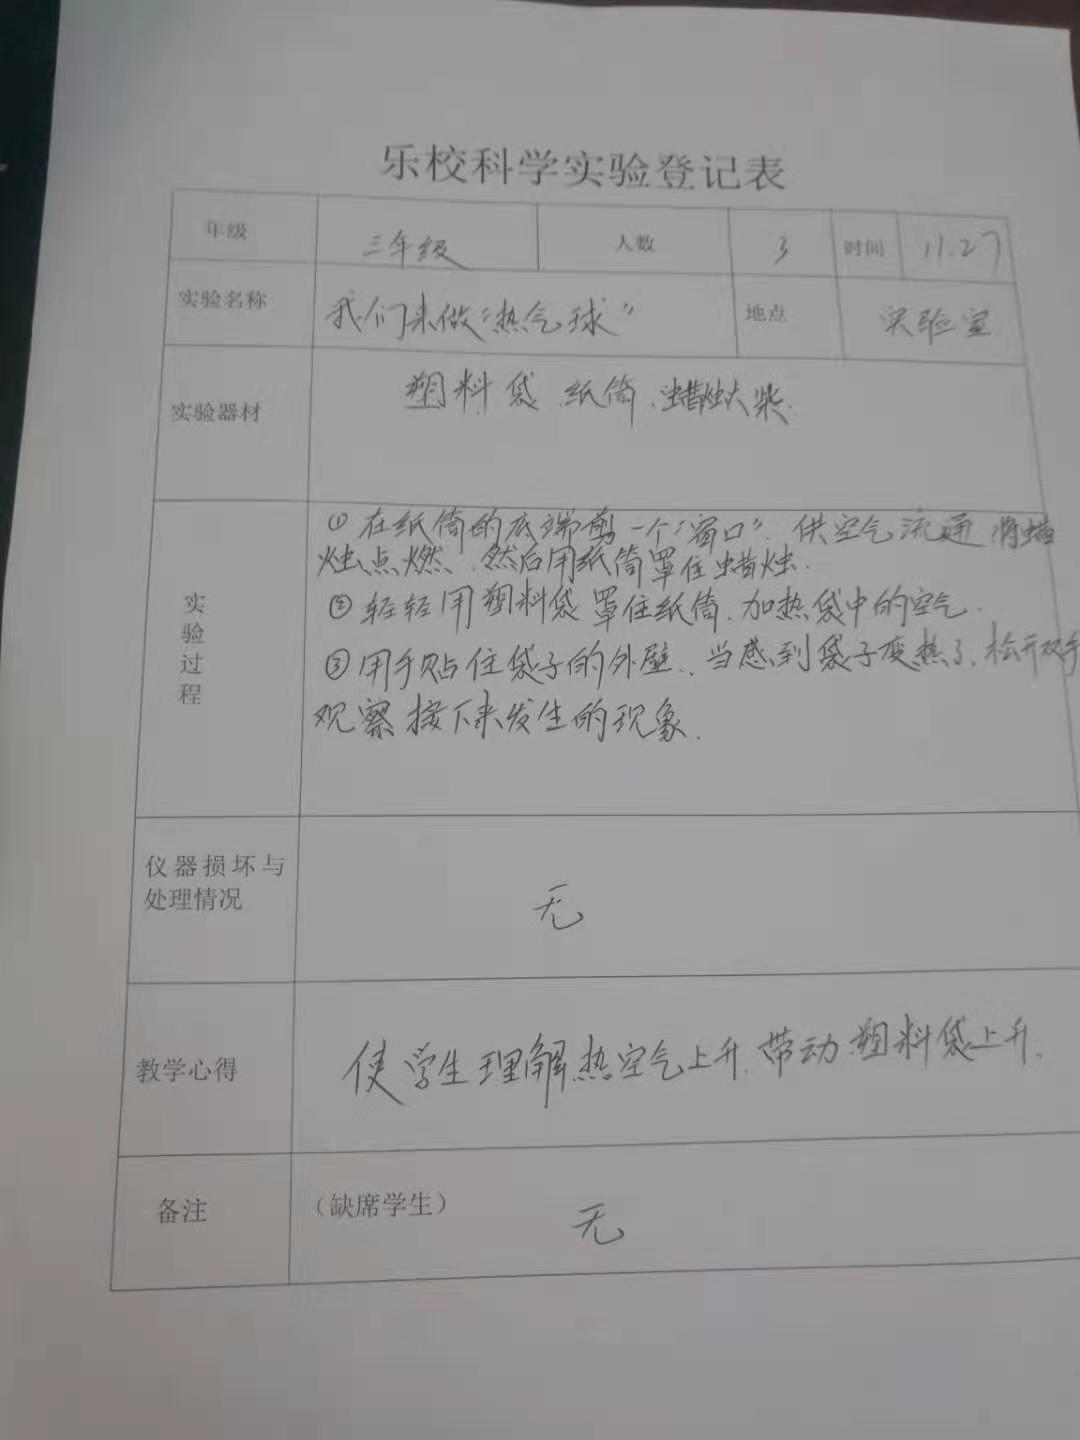 乐校科学实验登记表
年级 三年级 人数 3 时间 11.27
实验名称 我们来做“热气球” 地点 实验室
实验器材 塑料袋 纸筒、蜡烛火柴.
实验过程
①在纸筒的底端剪一个“窗口”. 供空气流通 将蜡
烛点燃. 然后用纸筒罩住蜡烛.
②轻轻用塑料袋罩住纸筒. 加热袋中的空气.
③用手贴住袋子的外壁、当感到袋子变热了、松开双手
观察接下来发生的现象.
仪器损坏与
处理情况
无
教学心得 使学生理解热空气上升. 带动塑料袋上升.
备注 （缺席学生） 无